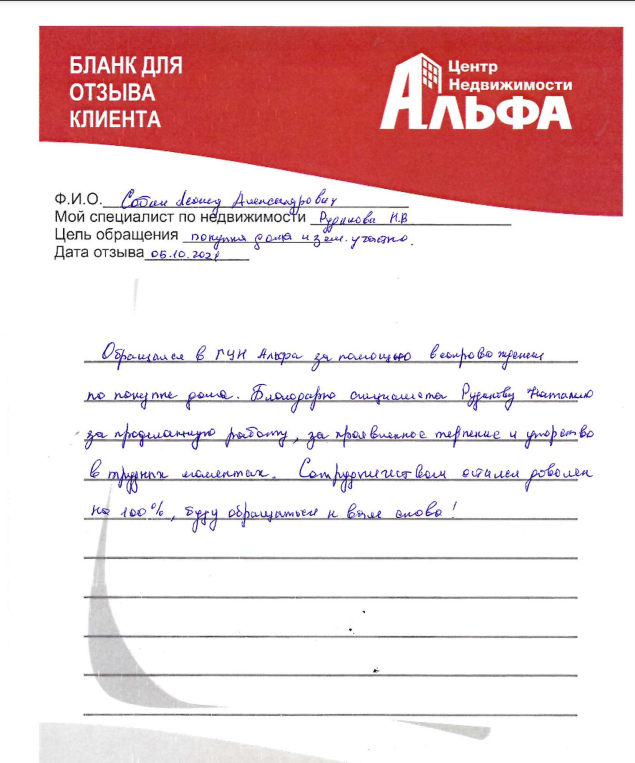 БЛАНК ДЛЯ
ОТЗЫВА
КЛИЕНТА
Центр
Недвижимости
АЛЬФА
Ф.И.О. Леонид Александрович
Мой специалист по недвижимости Рудакова Н.В
Цель обращения покупка дома и зем. участка.
Дата отзыва 06.10.2021
Обращался в ГЦН Альфа за помощью в сопровождении
по покупке дома. Благодарю специалиста Рудакову Наталию
за проделанную работу, за проявленное терпение и упорство
в трудных моментах. Сотрудничеством остался доволен
на 100%, буду обращаться к вам снова!